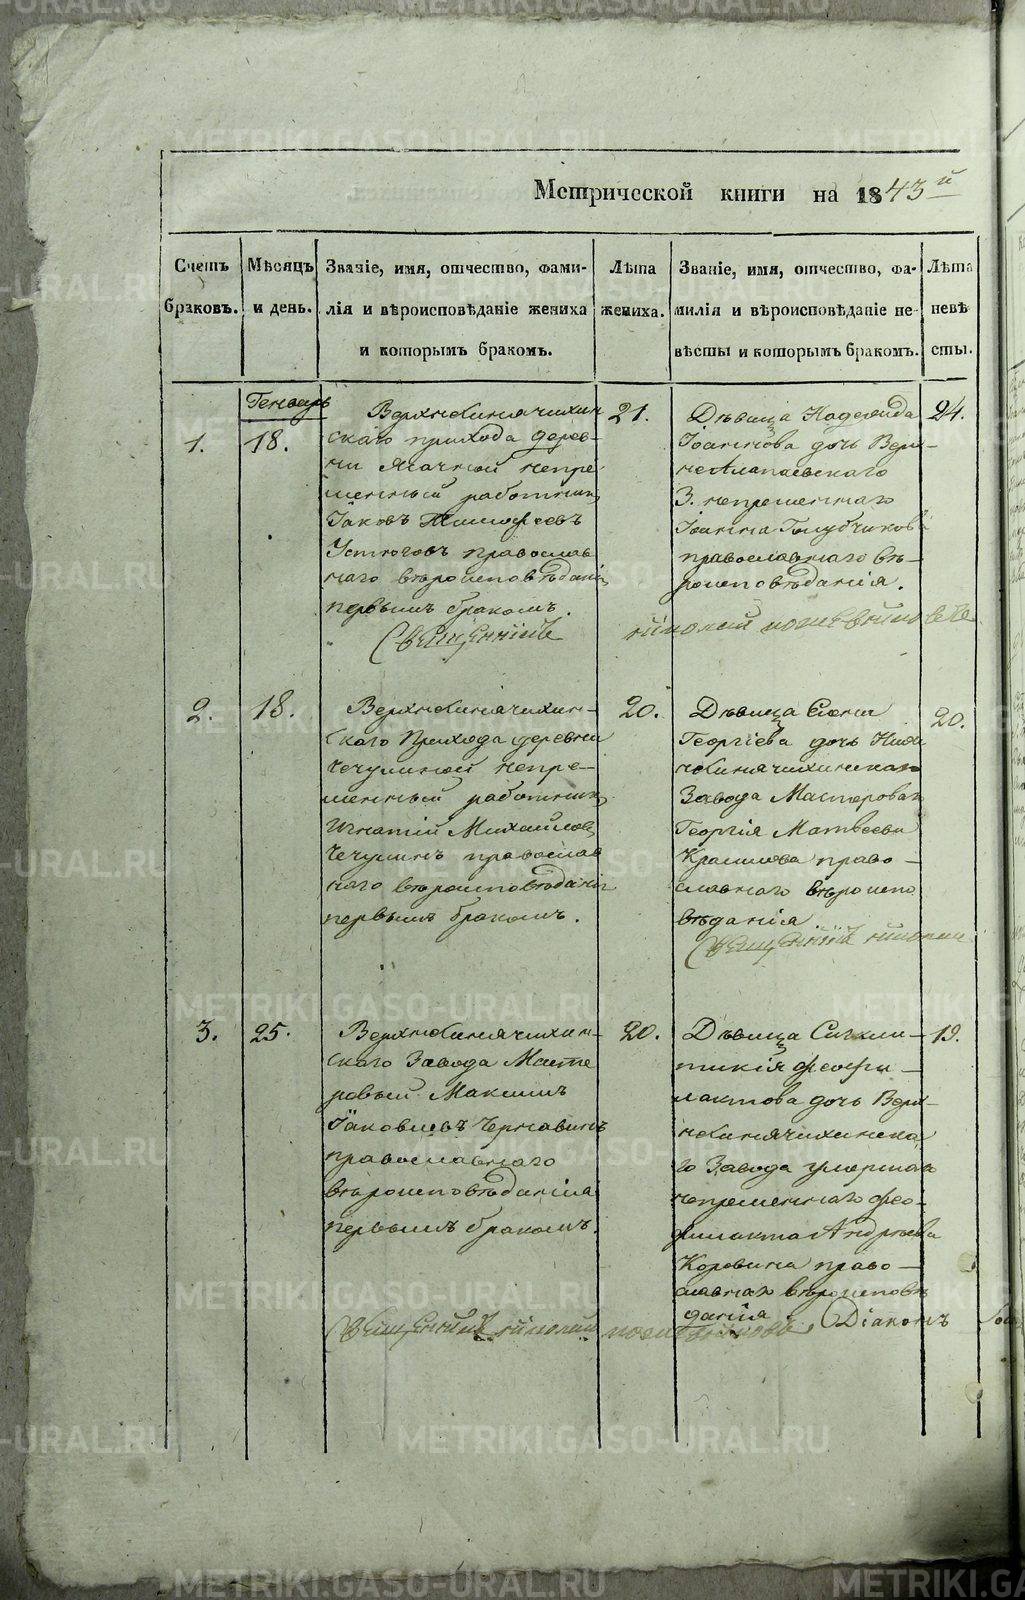 Метрической книги на 1843й
Счетъ браковъ.
Мѣсяцъ и день.
Званіе, имя, отчество, фами-
лія и вѣроисповѣданіе жениха
и которымъ бракомъ.
Лѣта жениха.
Званіе, имя, отчество, фа-
милія и вѣроисповѣданіе не-
вѣсты и которымъ бракомъ.
Лѣта невѣ
сты.
Генварь
1.
18.
Верхнесинячихин
скаго прихода дерев-
ни Ясачной непре
менный работник
Іаковъ Тимофеевъ
Устюговъ православ
наго вѣроисповѣдания
первымъ бракомъ.
21.
Дѣвица Надежда
Іоаннова дочь Верх-
неАлапаевскаго
З. непременнаго
Іоанна Голубчикова
православнаго вѣ-
роисповѣдания.
24.
Священникъ Николай
2.
18.
Верхнесинячихин-
скаго Прихода деревни
Чечулиной непре-
менный работник
Игнатій Михайлов
Чечулинъ православ
наго вѣроисповѣдания
первымъ бракомъ.
20.
Дѣвица
Георгіева дочь Нижн
несинячихинскаго
Завода Мастероваго
Георгія Матвеева
право-
славнаго вѣроиспо
вѣданія
20.
Священникъ Николай
3.
25.
Верхнесинячихин-
скаго Завода Масте
ровый Максимъ
Іаковлевъ Чернавинъ
православнаго
вѣроисповѣдания
первымъ бракомъ.
20.
Дѣвица Сигкли-
тикія Феофи-
лактова дочь Верх-
несинячихинска
го Завода умершаго
непременнаго Фео-
филакта Андреева
Коровина право-
славнаго вѣроисповѣ
данія
19.
Священникъ Николай
Діаконъ
METRIKI.GASO-URAL.RU